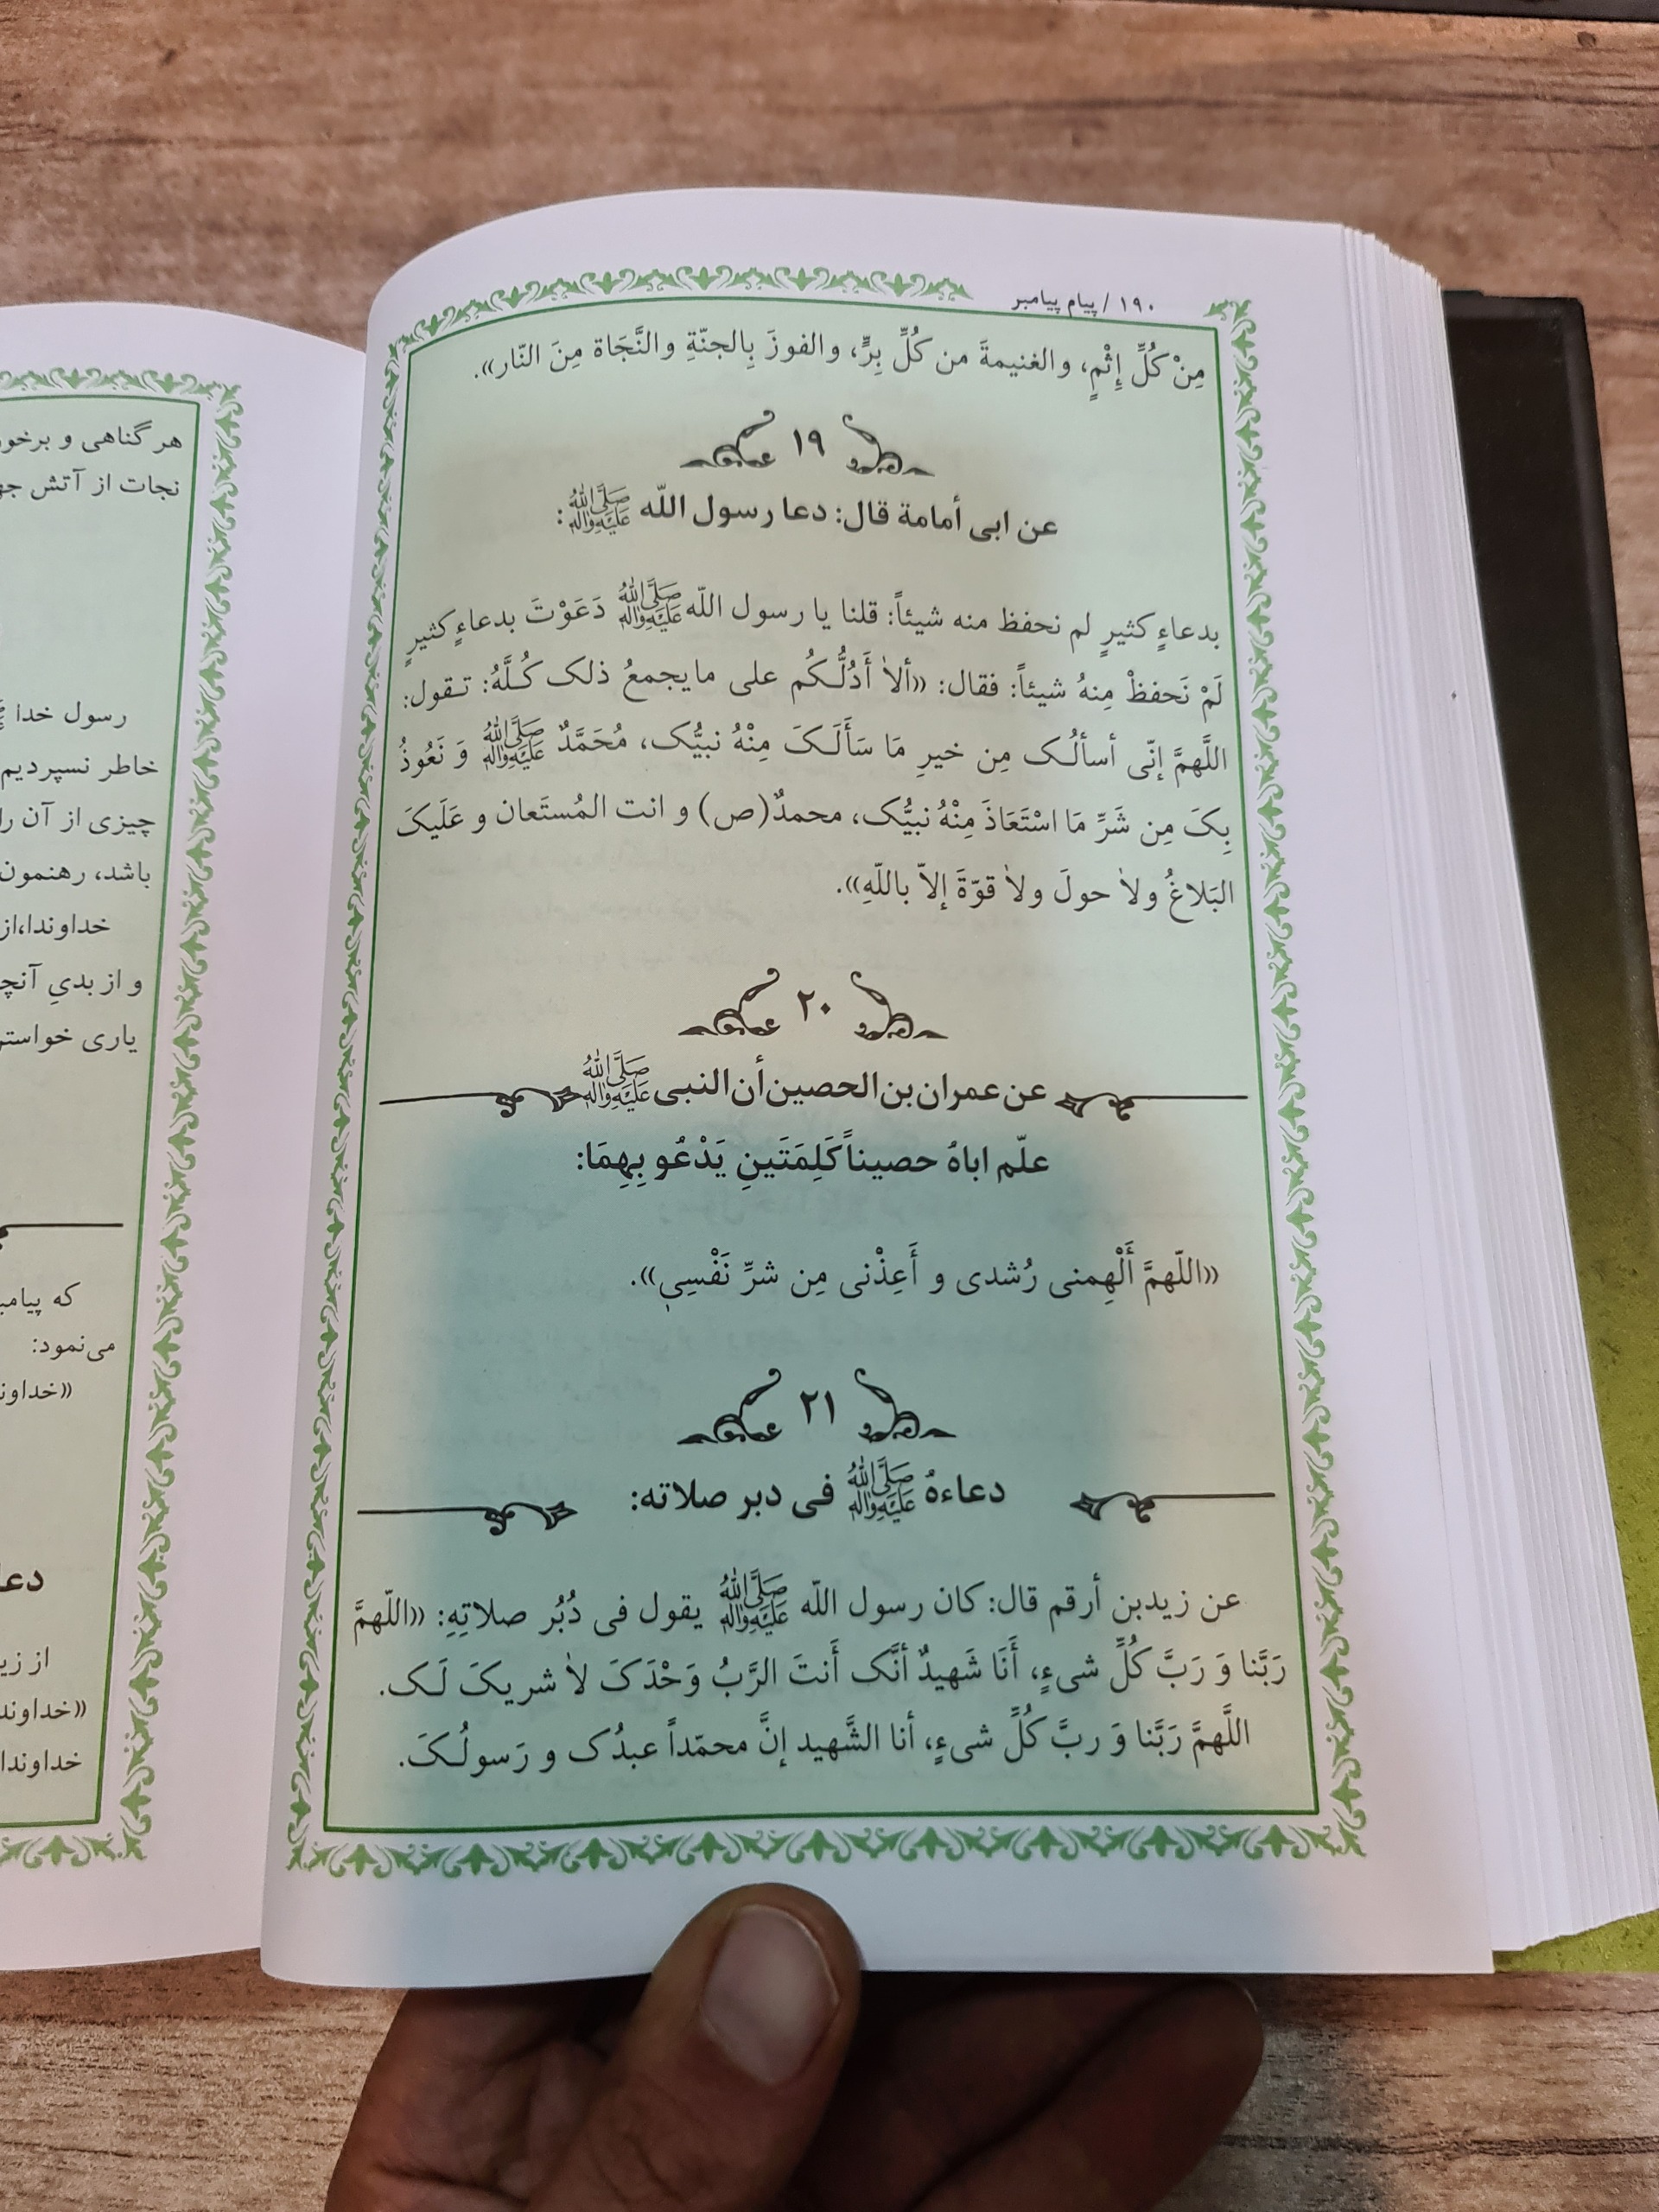 ۱۹۰ / پیام پیامبر
مِنْ کُلِّ إِثْمٍ، والغنیمةَ من کُلِّ بِرٍّ، والفوزَ بِالجنّةِ والنَّجَاة مِنَ النّار».
۱۹
عن ابی أمامة قال: دعا رسول اللّه ﷺ:
بدعاءٍ کثیرٍ لم نحفظ منه شیئاً: قلنا یا رسول اللّه ﷺ دَعَوْتَ بدعاءٍ کثیرٍ
لَمْ نَحفظْ مِنهُ شیئاً: فقال: «ألاٰ أَدُلُّکُم علی مایجمعُ ذلک کُلَّهُ: تقول:
اللَّهمَّ إنّی أسألُک مِن خیرِ مَا سَأَلَکَ مِنْهُ نبیُّک، مُحَمَّدٌ ﷺ وَ نَعُوذُ
بِکَ مِن شَرِّ مَا اسْتَعَاذَ مِنْهُ نبیُّک، محمدٌ(ص) و انت المُستَعان و عَلَیکَ
البَلاغُ ولاٰ حولَ ولاٰ قوّةَ إلاّ باللّهِ».
۲۰
عن عمران بن الحصین أن النبی ﷺ
علّم اباهُ حصیناً کَلِمَتَینِ یَدْعُو بِهِمَا:
«اللّهمَّ أَلْهِمنی رُشدی و أَعِذْنی مِن شرِّ نَفْسِی».
۲۱
دعاءهُ ﷺ فی دبر صلاته:
عن زیدبن أرقم قال: کان رسول اللّه ﷺ یقول فی دُبُر صلاتِهِ: «اللّهمَّ
رَبَّنا وَ رَبَّ کُلِّ شیءٍ، أَنَا شَهیدٌ أنَّک أَنتَ الرَّبُّ وَحْدَکَ لاٰ شریکَ لَک.
اللَّهمَّ رَبَّنا وَ ربَّ کُلِّ شیءٍ، أنا الشَّهید إنَّ محمّداً عبدُک و رَسولُکَ.
هر گناهی و
نجات از آتش
رسول خدا
خاطر نسپردیم
چیزی از آن را
باشد، رهنمون
خداوندا،از
و از بدیِ
یاری
که
می‌نمود:
از